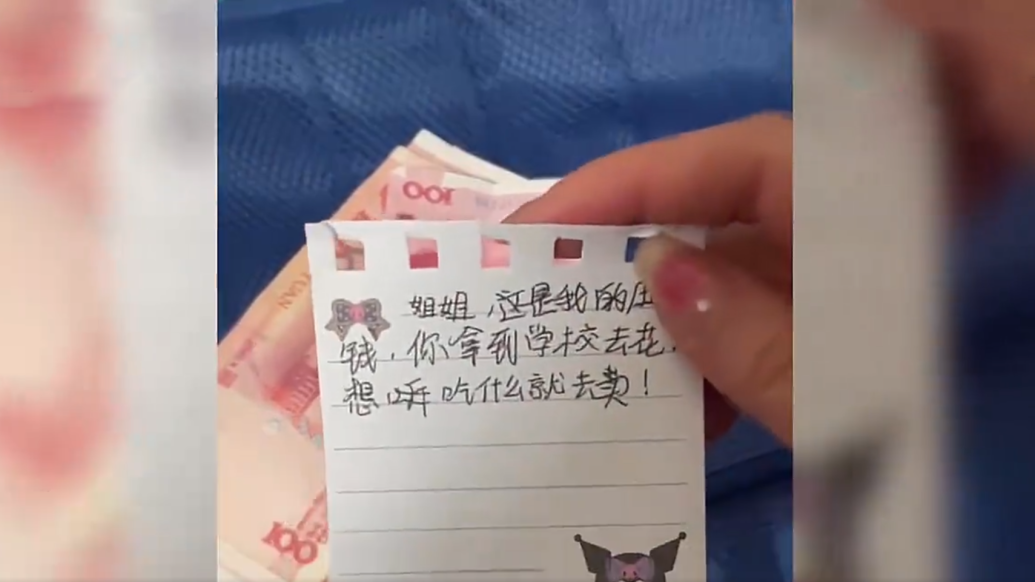 100
YUAN
姐姐，这是我的
钱，你拿到学校去花，
想吃什么就去卖！
100